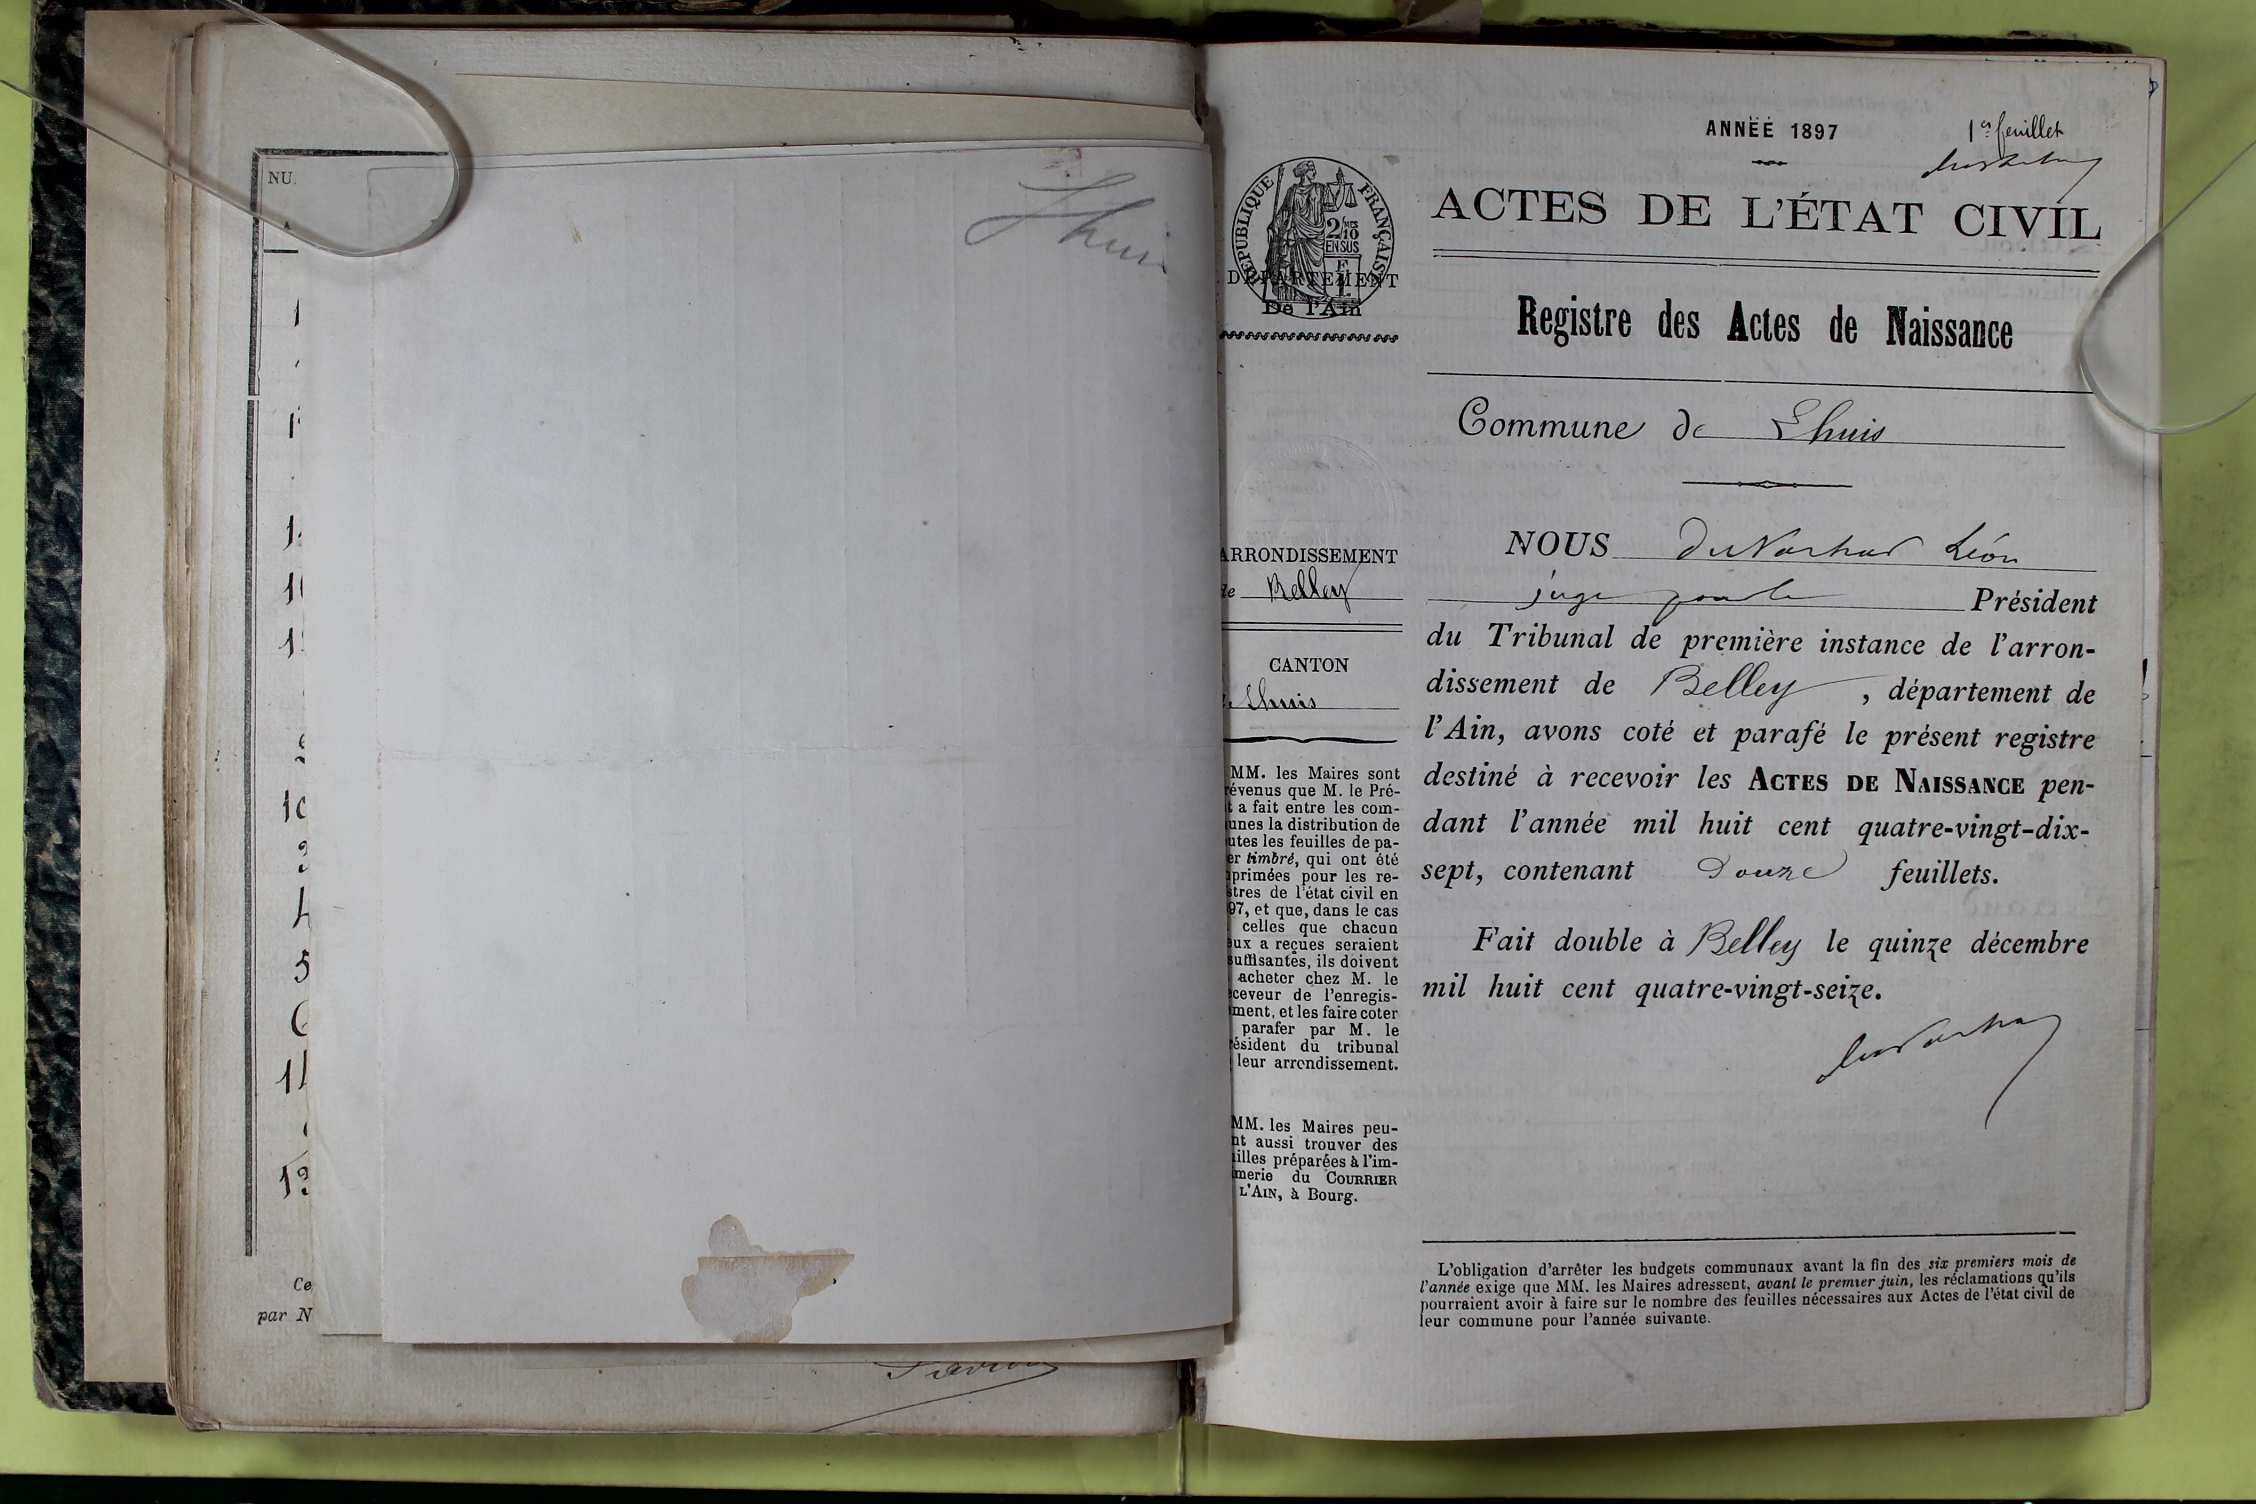 NU.
Lhuis
1
1
1
10
5
11
Ce
par N
ANNÉE 1897
1er feuillet
RÉPUBLIQUE FRANÇAISE
2/10
EN SUS
DÉPARTEMENT
De l'Ain
ACTES DE L'ÉTAT CIVIL
Registre des Actes de Naissance
Commune de Lhuis
ARRONDISSEMENT
de Belley
CANTON
Lhuis
MM. les Maires sont
évenus que M. le Pré-
t a fait entre les com-
unes la distribution de
utes les feuilles de pa-
er timbré, qui ont été
primées pour les re-
stres de l'état civil en
97, et que, dans le cas
celles que chacun
eux a reçues seraient
suffisantes, ils doivent
acheter chez M. le
ceveur de l'enregis-
ment, et les faire coter
parafer par M. le
résident du tribunal
leur arrondissement.
MM. les Maires peu-
nt aussi trouver des
illes préparées à l'im-
merie du COURRIER
L'AIN, à Bourg.
NOUS Léon
juge pour le Président
du Tribunal de première instance de l'arron-
dissement de Belley, département de
l'Ain, avons coté et parafé le présent registre
destiné à recevoir les ACTES DE NAISSANCE pen-
dant l'année mil huit cent quatre-vingt-dix-
sept, contenant Douze feuillets.
Fait double à Belley le quinze décembre
mil huit cent quatre-vingt-seize.
L'obligation d'arrêter les budgets communaux avant la fin des six premiers mois de
l'année exige que MM. les Maires adressent, avant le premier juin, les réclamations qu'ils
pourraient avoir à faire sur le nombre des feuilles nécessaires aux Actes de l'état civil de
leur commune pour l'année suivante.